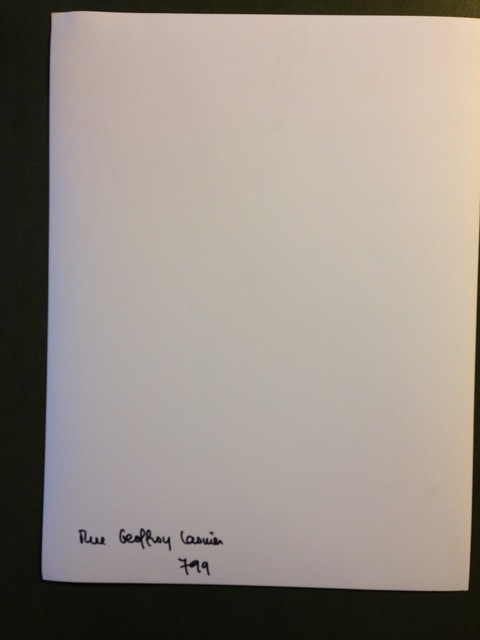 Rue Geoffroy Lasnier
799